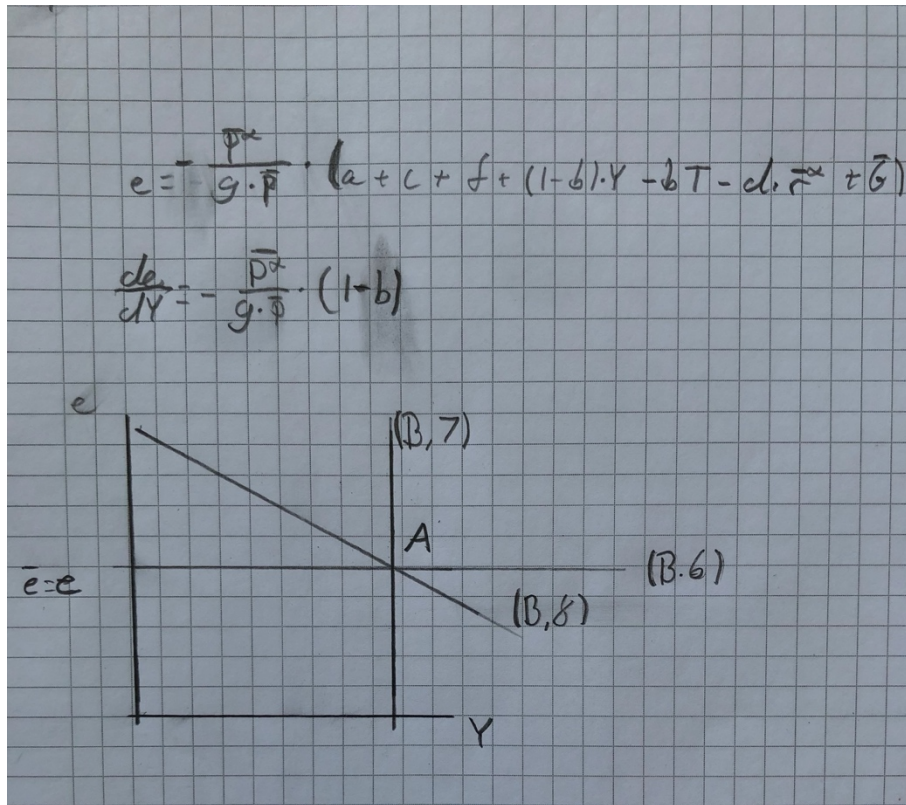 e = - P̄^α / (g · P̄) · (a + c + f + (1-b) · Y - bT - d · r̄^α + Ḡ)
de/dY = - P̄^α / (g · P̄) · (1-b)
e
(B,7)
A
ē=e
(B.6)
(B,8)
Y